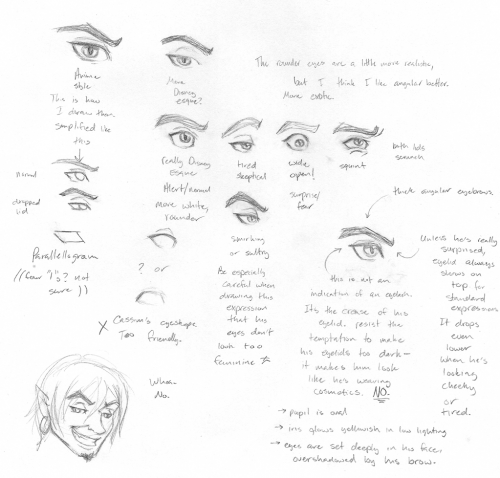 The rounder eyes are a little more realistic,
but I think I like angular better.
More exotic.
Anime
style
This is how
I draw them
simplified like
this
More
Disney
esque?
really Disney
Esque
Alert/normal
more white,
rounder
tired
skeptical
wide
open!
surprise/
fear
squint
both lids
scrunch
normal
dropped
lid
thick angular eyebrows.
Parallelogram
? or
X Cassim's eyeshape
Too friendly.
smirking
or sultry
Be especially
careful when
drawing this
expression
that his
eyes don't
look too
feminine
this is not an
indication of an eyelash.
Its the crease of his
eyelid. resist the
temptation to make
his eyelids too dark-
it makes him look
like hes wearing
cosmetics. NO.
Unless he's really
surprised,
eyelid always
shows on
top for
standard
expressions
It drops
even
lower
when he's
looking
cheeky
or
tired.
Whoa.
No.
→ pupil is oval
→ iris glows yellowish in low lighting
→ eyes are set deeply in his face,
overshadowed by his brow.